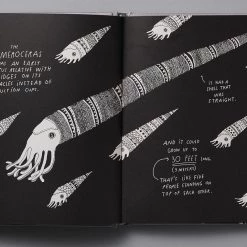 THE
AN EARLY
RELATIVE WITH
RIDGES ON ITS
INSTEAD OF
CUPS.
IT HAD A
SHELL THAT
WAS
STRAIGHT.
AND IT COULD
GROW UP TO
30 FEET LONG.
THAT'S LIKE FIVE
PEOPLE STANDING ON
TOP OF EACH OTHER.